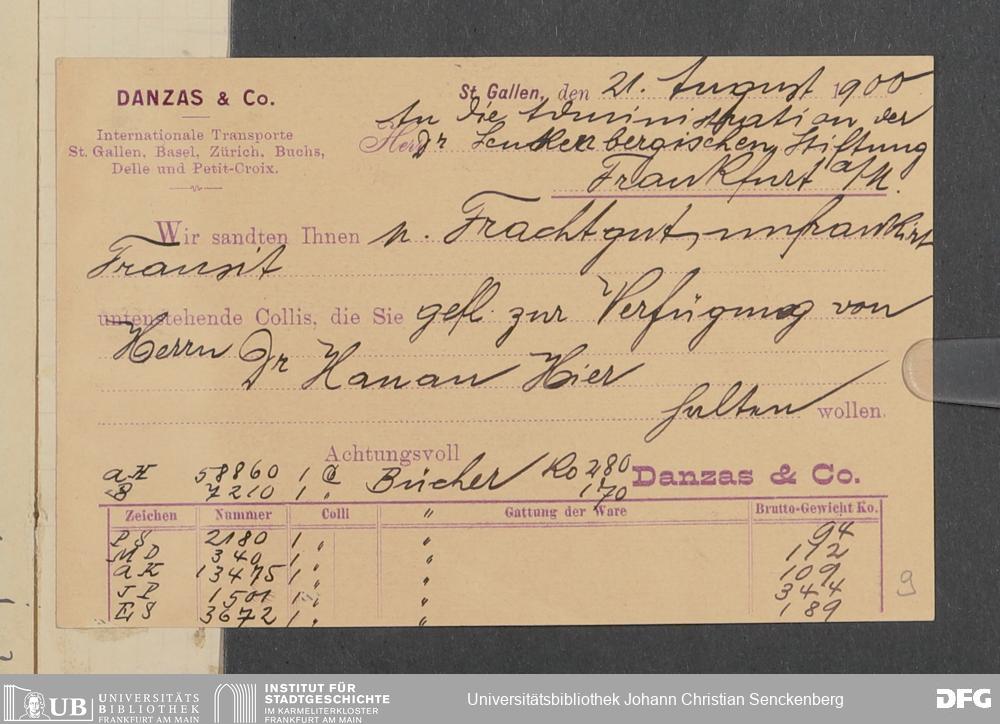 DANZAS & Co.
Internationale Transporte
St. Gallen, Basel, Zürich, Buchs,
Delle und Petit-Croix.
St. Gallen, den 21. August 1900
An die Administration der
Herr Dr Senckenbergischen Stiftung
Frankfurt a/M.
Wir sandten Ihnen p. Frachtgut, unfrankirt
Transit
untenstehende Collis, die Sie gefl. zur Verfügung von
Herrn Dr Hanau Hier
halten wollen.
Achtungsvoll
Danzas & Co.
aK 58860 1 C Bücher Ko 280
B 7210 1 " 170
Zeichen Nummer Colli " Gattung der Ware Brutto-Gewicht Ko.
PS 2180 1 " " 94
MD 340 1 " " 192
aK 13475 1 " " 109
JP 1501 1 " " 344
ES 3672 1 " " 189
9
UB UNIVERSITÄTS
BIBLIOTHEK
FRANKFURT AM MAIN
INSTITUT FÜR
STADTGESCHICHTE
IM KARMELITERKLOSTER
FRANKFURT AM MAIN
Universitätsbibliothek Johann Christian Senckenberg
DFG